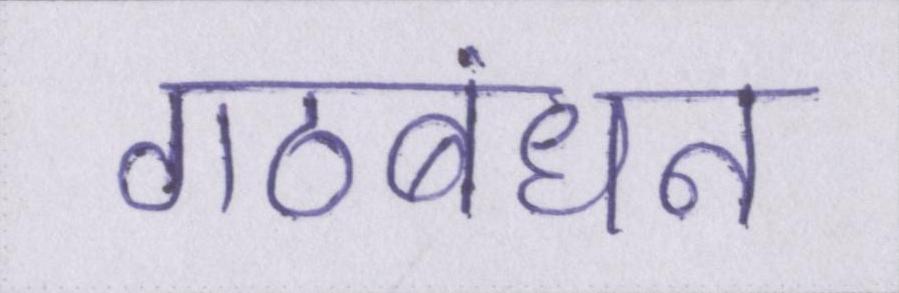 गठबंधन